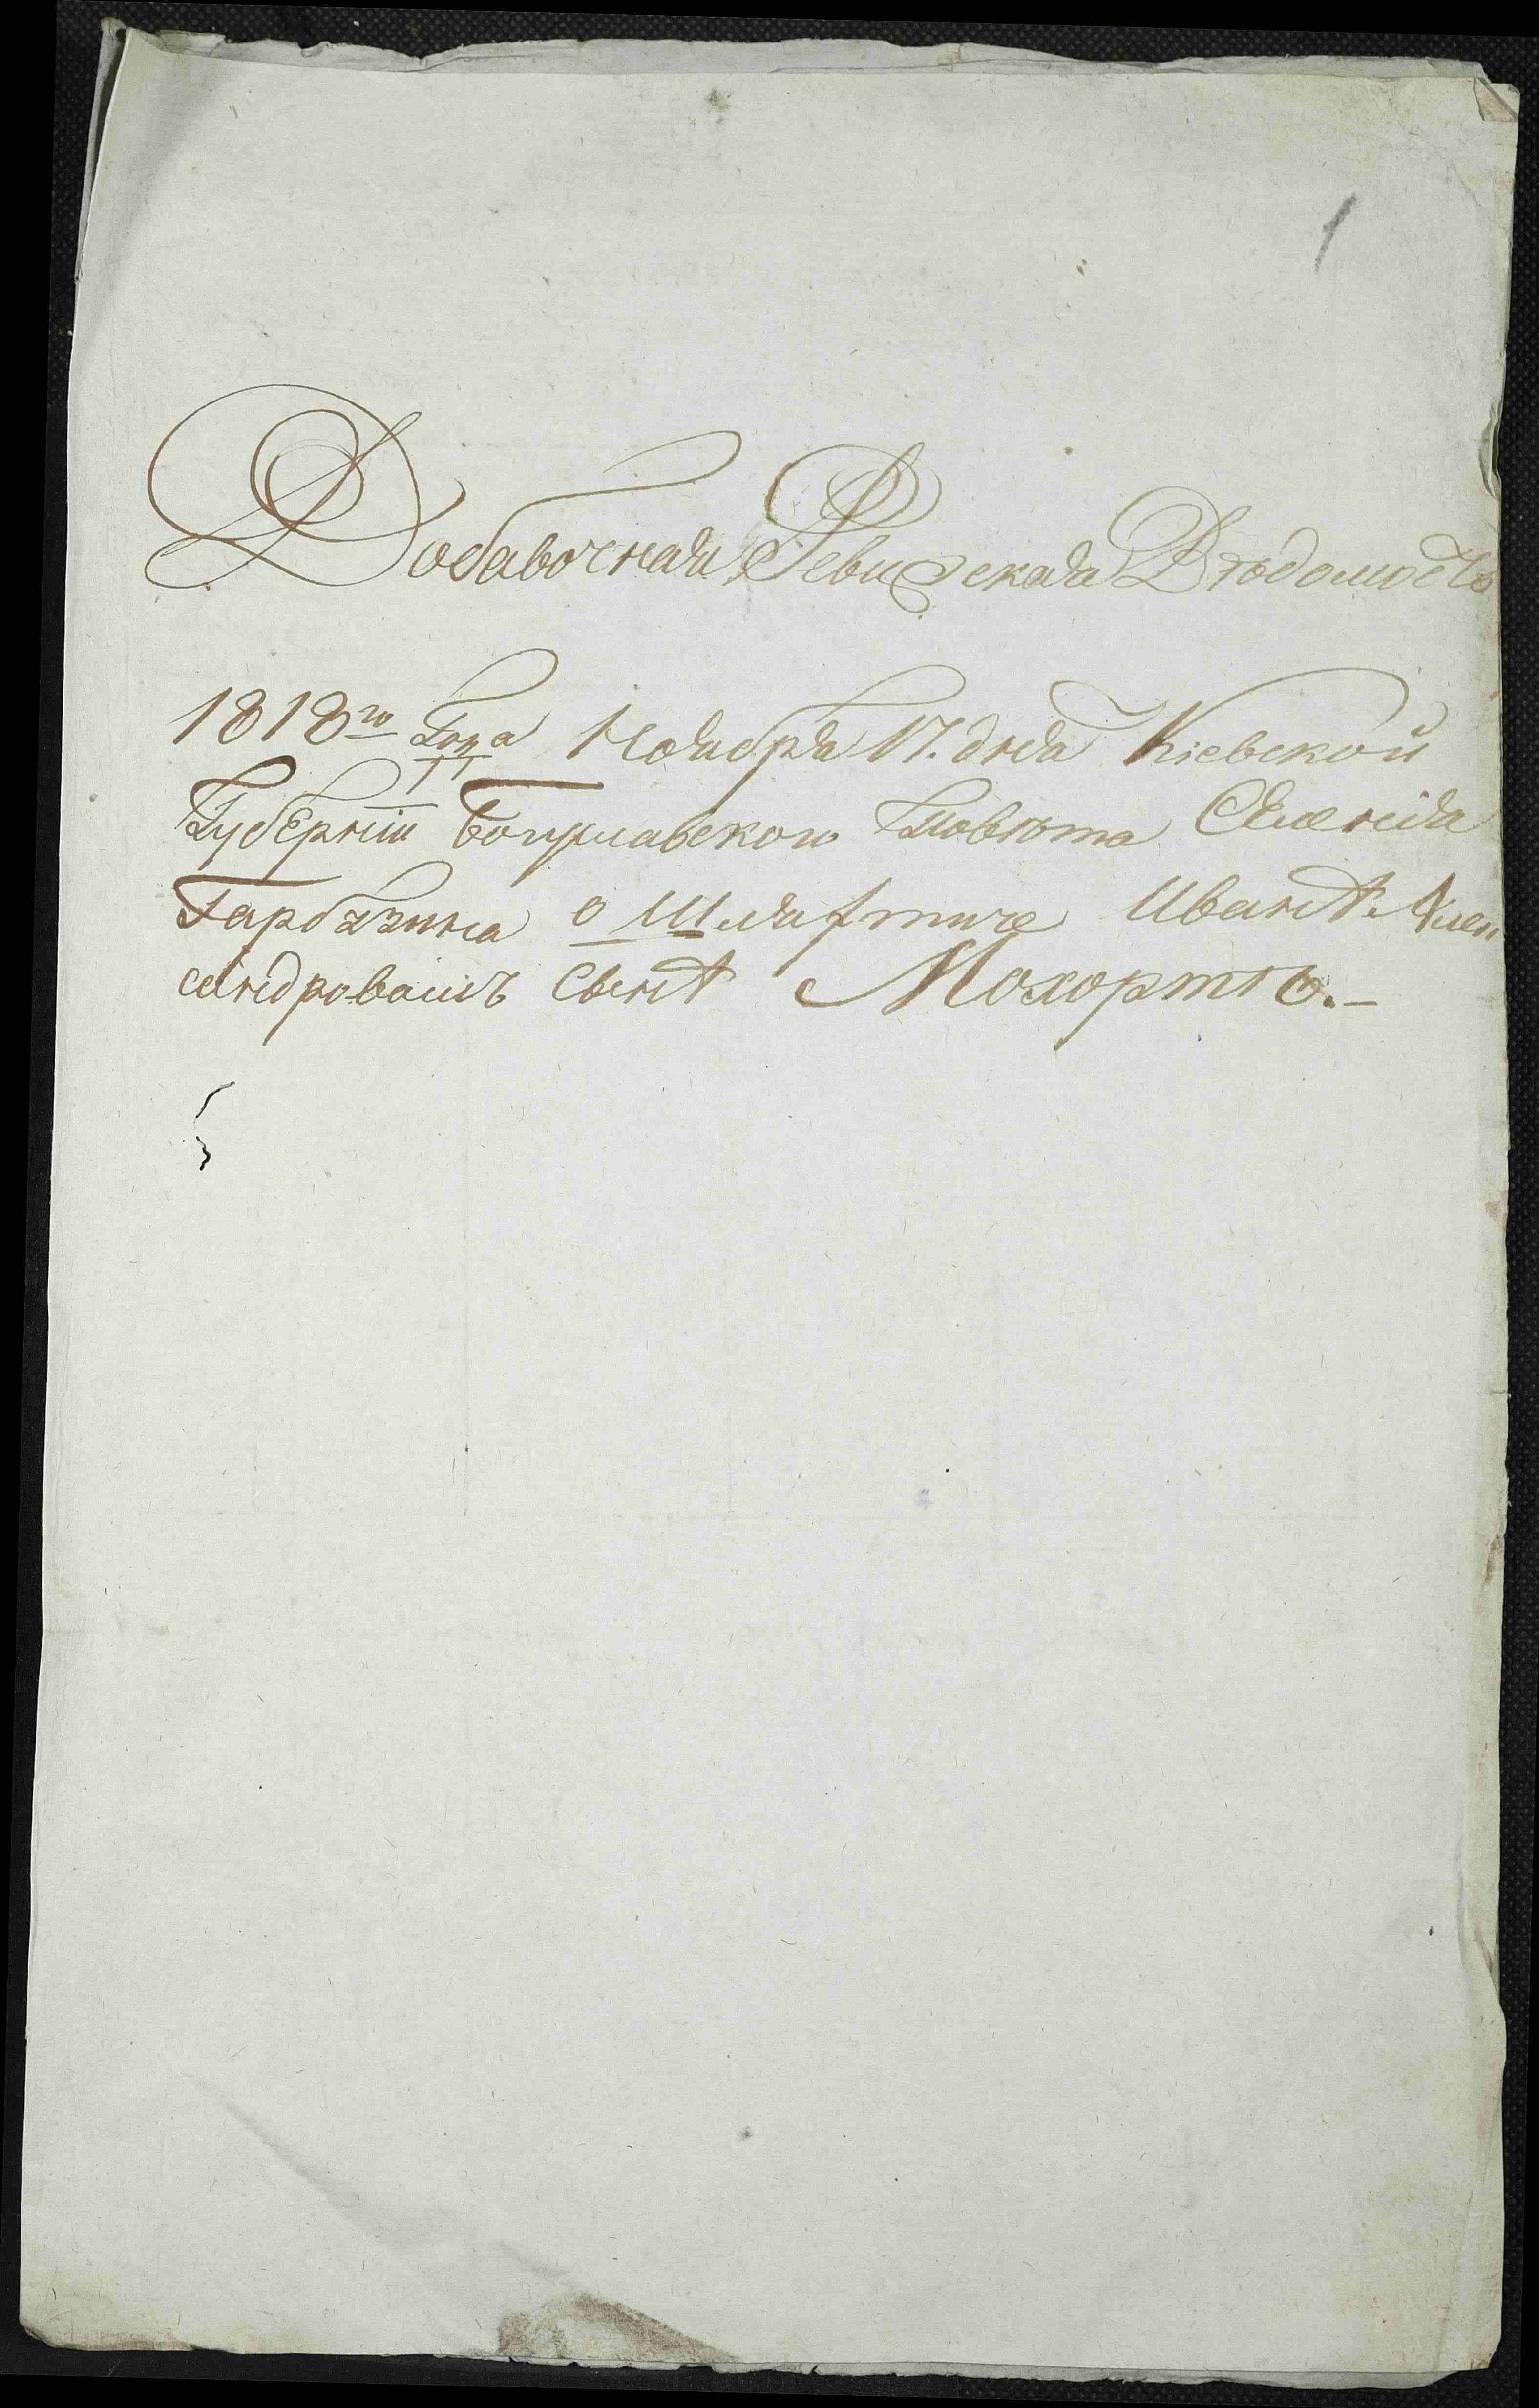 1
Добавочная Ревизская Вѣдомость
1818го Года Ноября 17. дня Кіевской
Губерніи Богуславского Повѣта Селенія
Гарбузина о Шляхтиче Иванѣ Алек
сандровомъ Сынѣ Мохортѣ.-